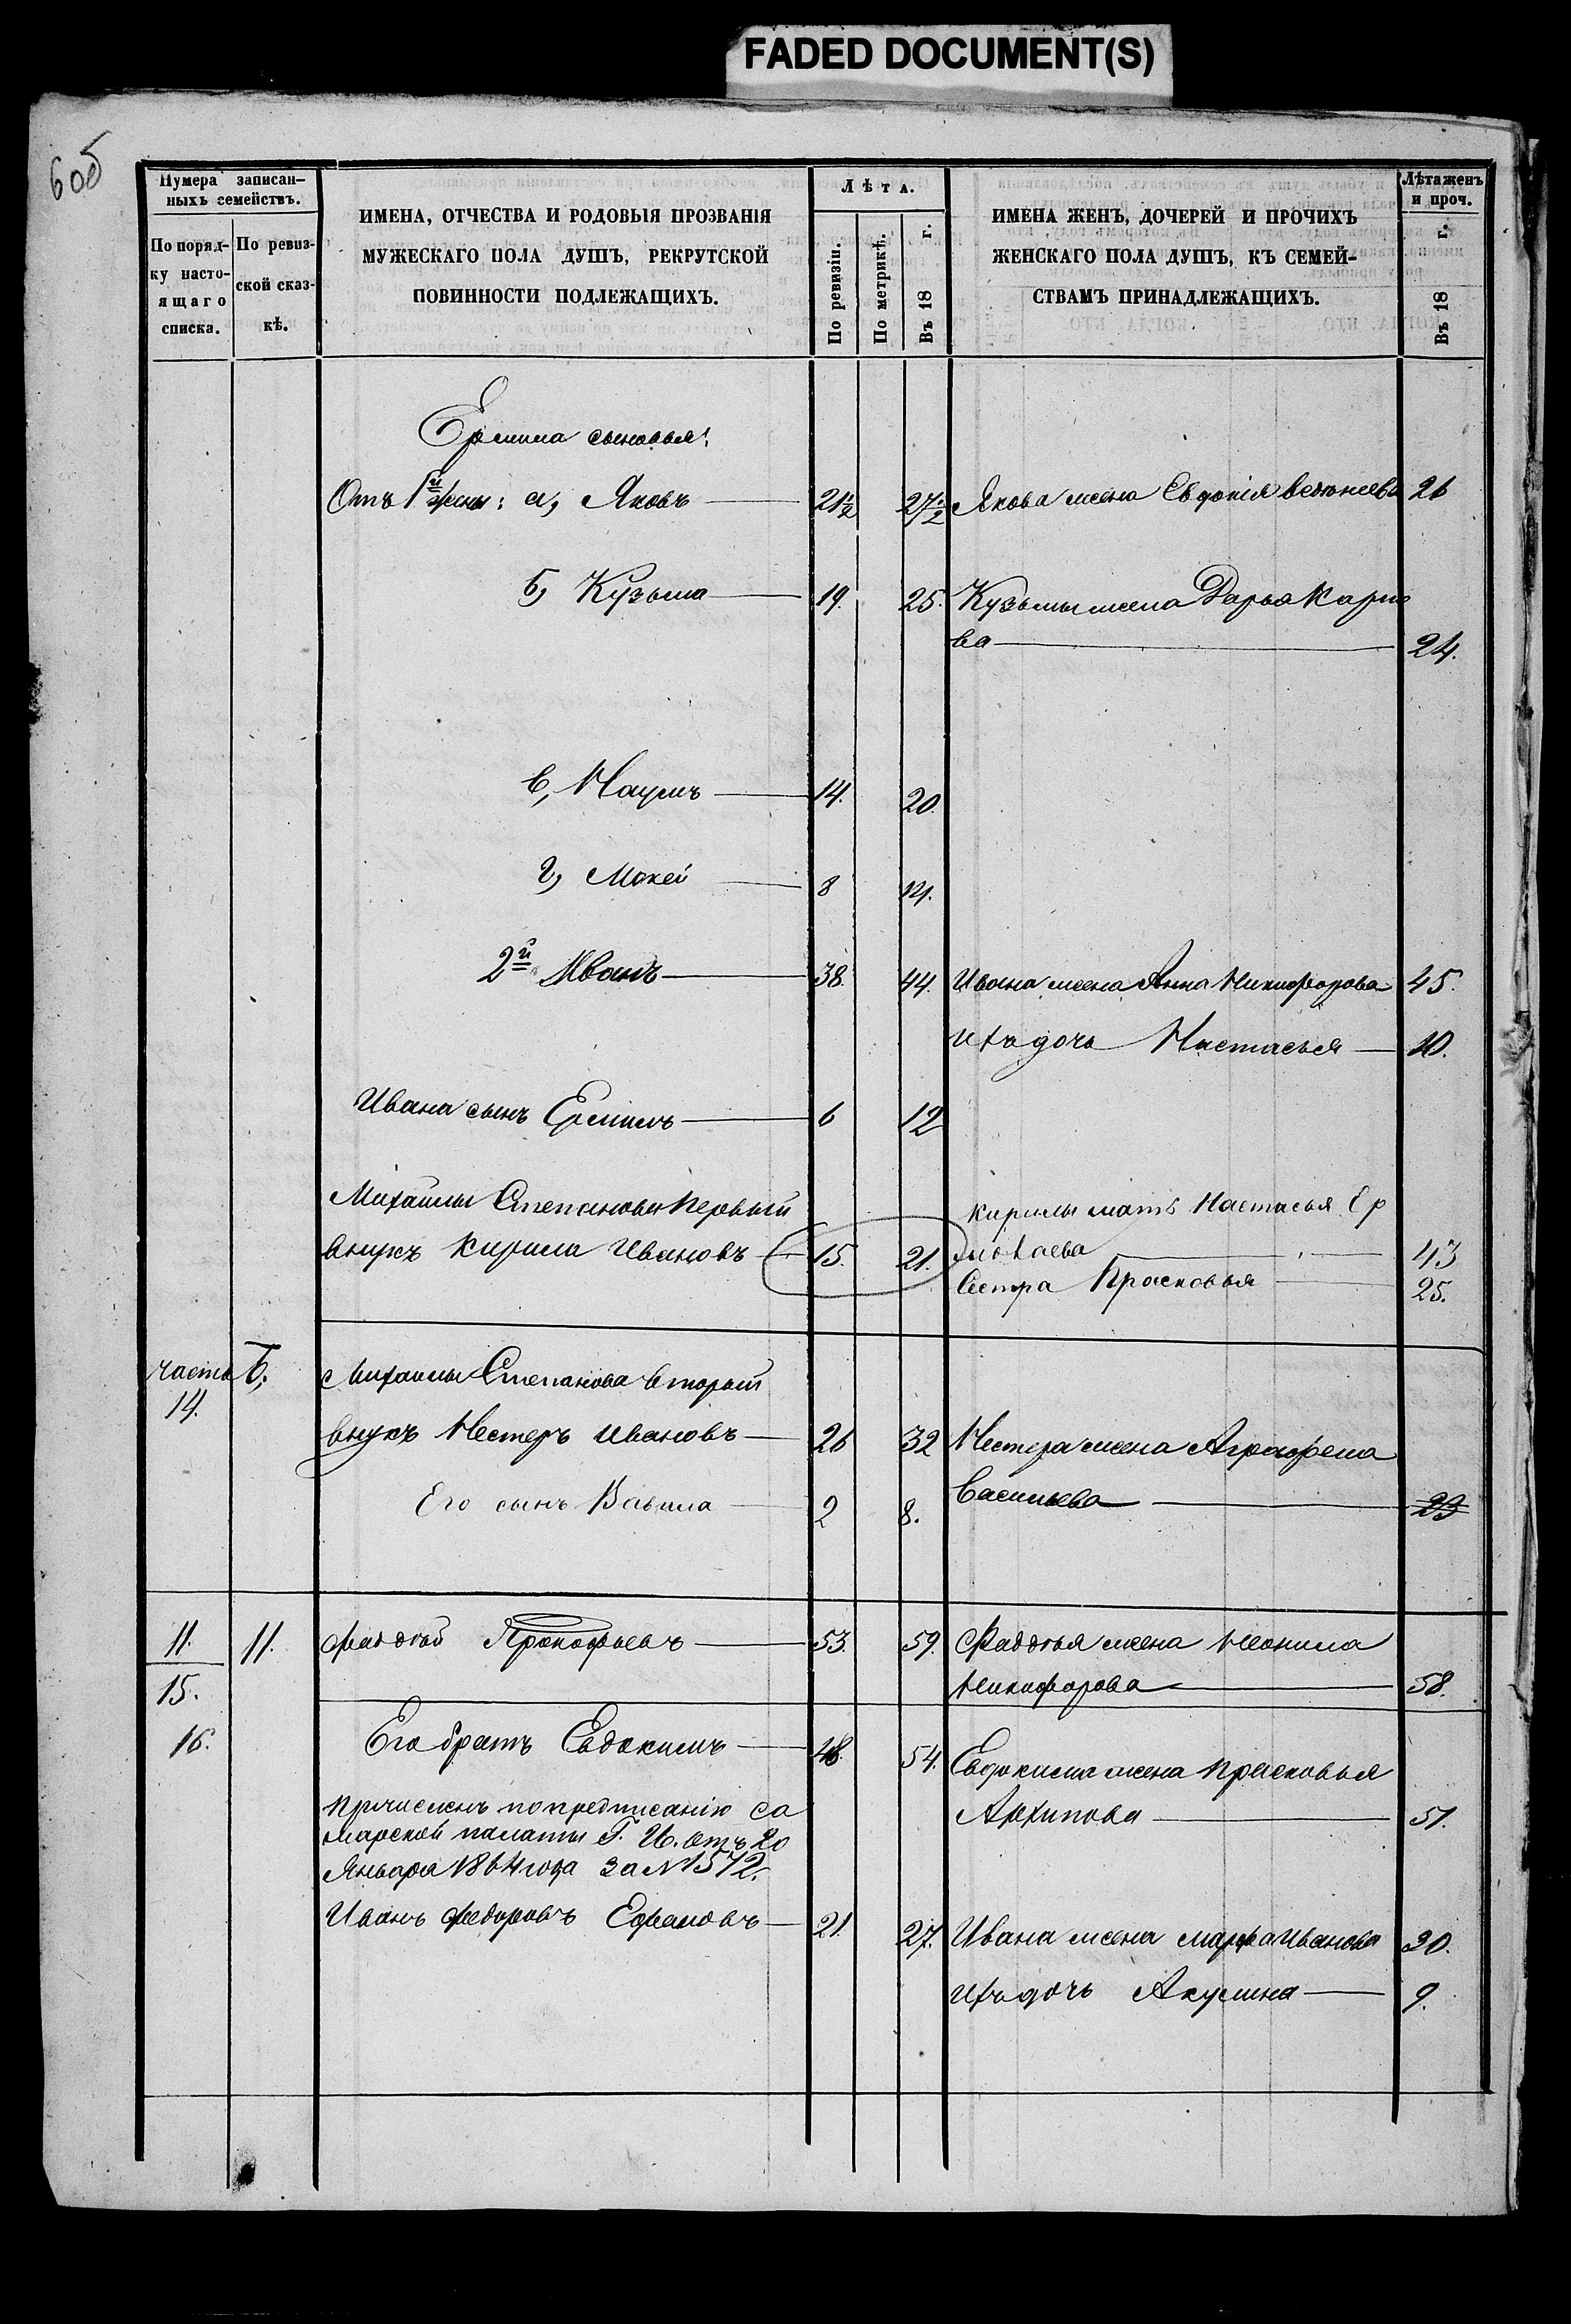 FADED DOCUMENT(S)
6об
Нумера записан-
ныхъ семействъ.
По поряд-
ку насто-
ящаго
списка.
По ревиз-
ской сказ-
кѣ.
ИМЕНА, ОТЧЕСТВА И РОДОВЫЯ ПРОЗВАНІЯ
МУЖЕСКАГО ПОЛА ДУШЪ, РЕКРУТСКОЙ
ПОВИННОСТИ ПОДЛЕЖАЩИХЪ.
Лѣта.
По ревизіи.
По метрикѣ.
Въ 18 г.
ИМЕНА ЖЕНЪ, ДОЧЕРЕЙ И ПРОЧИХЪ
ЖЕНСКАГО ПОЛА ДУШЪ, КЪ СЕМЕЙ-
СТВАМЪ ПРИНАДЛЕЖАЩИХЪ.
Лѣта женъ
и проч.
Въ 18 г.
Ермила сыновья:
Отъ 1й жены: а, Яковъ 21½ 27½ Якова жена Евдокія 26
б, Кузьма 19. 25. Кузьмы жена Дарья Карпо
ва 24.
в, Наумъ 14. 20.
г, Мокей 8 14.
2й Иванъ 38. 44. Ивана жена Анна Никифорова 45.
ихъ дочь Настасья 10.
Ивана сынъ Ермилъ 6 12
Михайлы Степанова первый Кирилы мать Настасья Ер
внукъ Кирила Ивановъ 15. 21. молаева 43
Сестра Прасковья 25.
часть б, Михайлы Степанова вторый
14.
внукъ Нестеръ Ивановъ 26 32 Нестера жена Аграфена
Его сынъ Вавила 2 8. Васильева 23
11. 11. Фаддей Прокофьевъ 53. 59. Фаддея жена Неонила
15. Никифорова 58.
16. Его братъ Евдокимъ 48. 54. Евдокима жена Прасковья
Архипова 51.
Причисленъ по предписанію Са
марской палаты Г. И. отъ 20
Января 1864 года за № 1572.
Иванъ Федоровъ 21. 27. Ивана жена Марфа Иванова 30.
ихъ дочь Акулина 9.